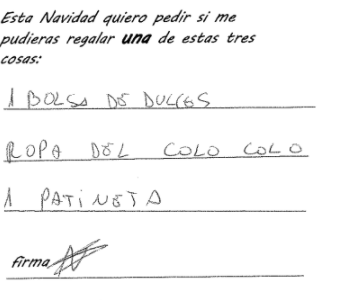 Esta Navidad quiero pedir si me
pudieras regalar una de estas tres
cosas:
1 BOLSA DE DULCES
ROPA DEL COLO COLO
1 PATINETA
firma